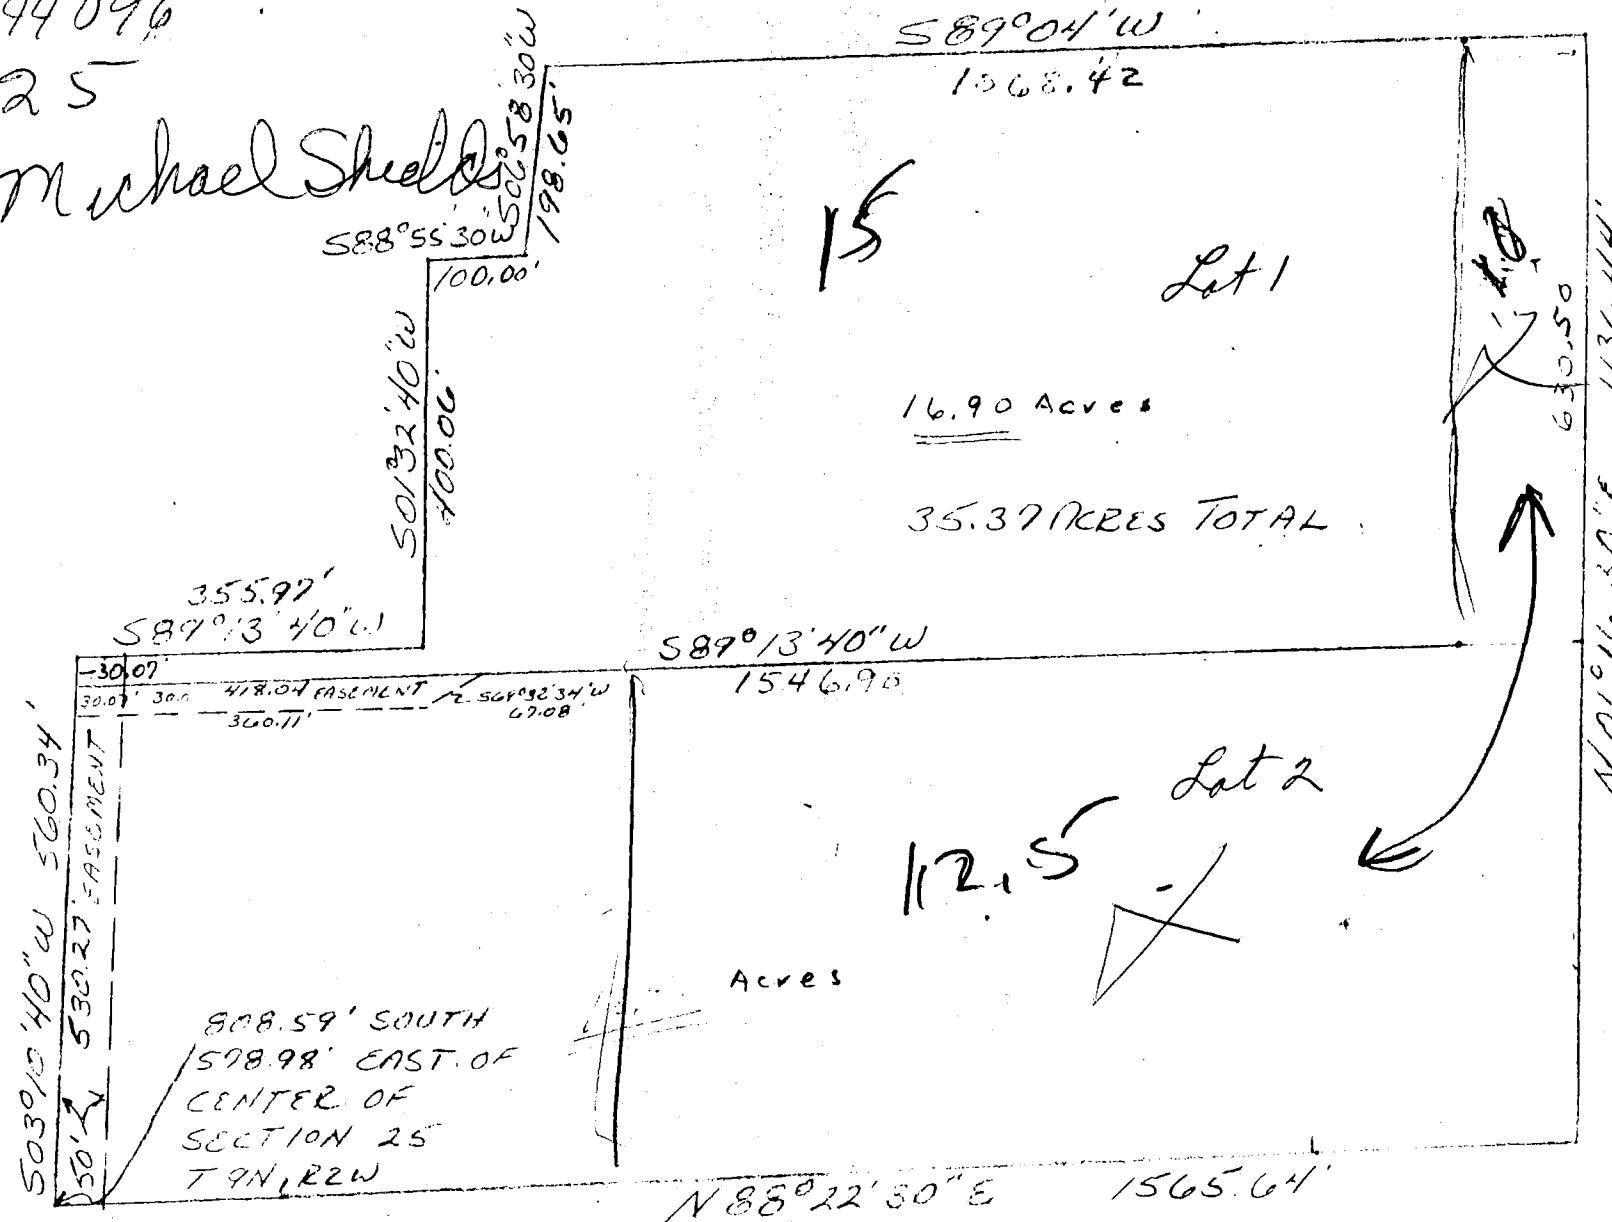 44096
25
Michael Shields
S89°04'W
1068.42
S06°58'30"W
198.65'
S88°55'30"W
100.00'
15
Lot 1
630.50
S01°32'40"W
400.06'
16.90 Acres
35.37 ACRES TOTAL
355.97'
S89°13'40"W
S89°13'40"W
1546.90
30.07'
30.07' 30.0 418.04 EASEMENT
360.11'
67.08'
S03°10'40"W 560.34'
530.27' EASEMENT
50'
Lot 2
12.5
Acres
808.59' SOUTH
578.98' EAST OF
CENTER OF
SECTION 25
T9N, R2W
N88°22'30"E 1565.64'